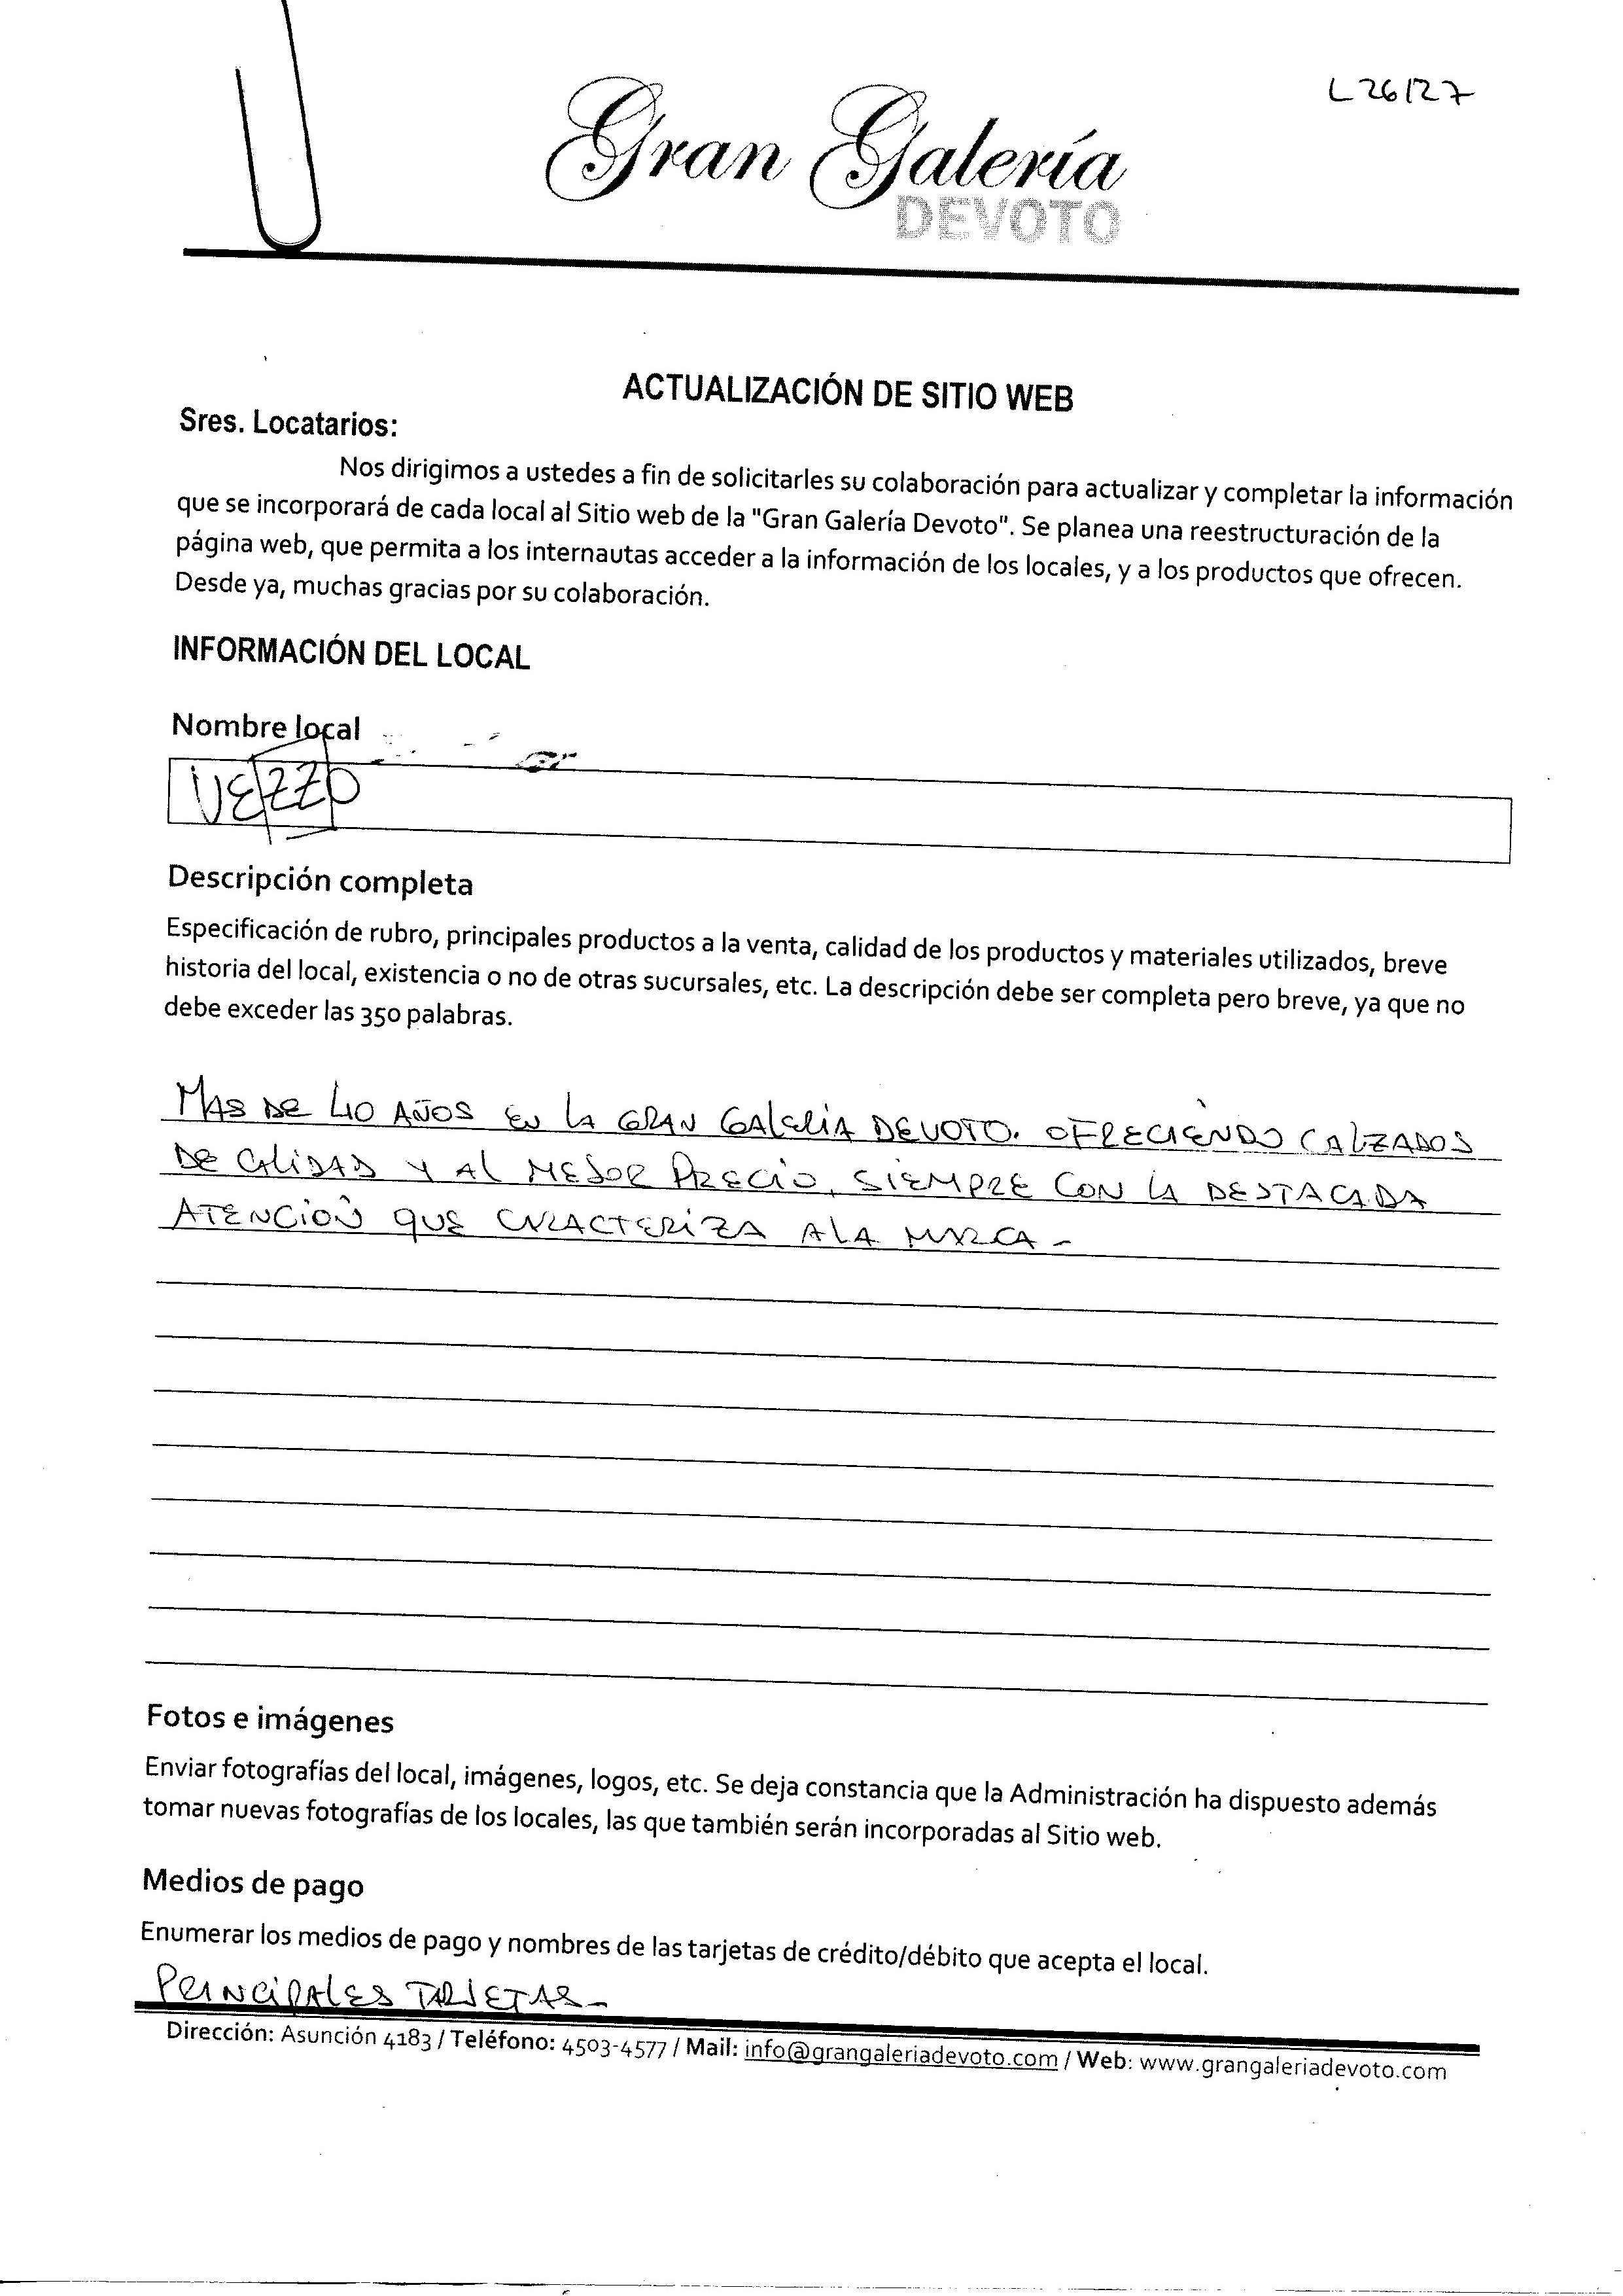 L 26/27
Gran Galería
DEVOTO
ACTUALIZACIÓN DE SITIO WEB
Sres. Locatarios:
Nos dirigimos a ustedes a fin de solicitarles su colaboración para actualizar y completar la información
que se incorporará de cada local al Sitio web de la "Gran Galería Devoto". Se planea una reestructuración de la
página web, que permita a los internautas acceder a la información de los locales, y a los productos que ofrecen.
Desde ya, muchas gracias por su colaboración.
INFORMACIÓN DEL LOCAL
Nombre local
VEZZO
Descripción completa
Especificación de rubro, principales productos a la venta, calidad de los productos y materiales utilizados, breve
historia del local, existencia o no de otras sucursales, etc. La descripción debe ser completa pero breve, ya que no
debe exceder las 350 palabras.
MAS DE 40 AÑOS EN LA GRAN GALERIA DEVOTO. OFRECIENDO CALZADOS
DE CALIDAD Y AL MEJOR PRECIO, SIEMPRE CON LA DESTACADA
ATENCION QUE CARACTERIZA A LA MARCA -
Fotos e imágenes
Enviar fotografías del local, imágenes, logos, etc. Se deja constancia que la Administración ha dispuesto además
tomar nuevas fotografías de los locales, las que también serán incorporadas al Sitio web.
Medios de pago
Enumerar los medios de pago y nombres de las tarjetas de crédito/débito que acepta el local.
PRINCIPALES TARJETAS -
Dirección: Asunción 4183 / Teléfono: 4503-4577 / Mail: info@grangaleriadevoto.com / Web: www.grangaleriadevoto.com